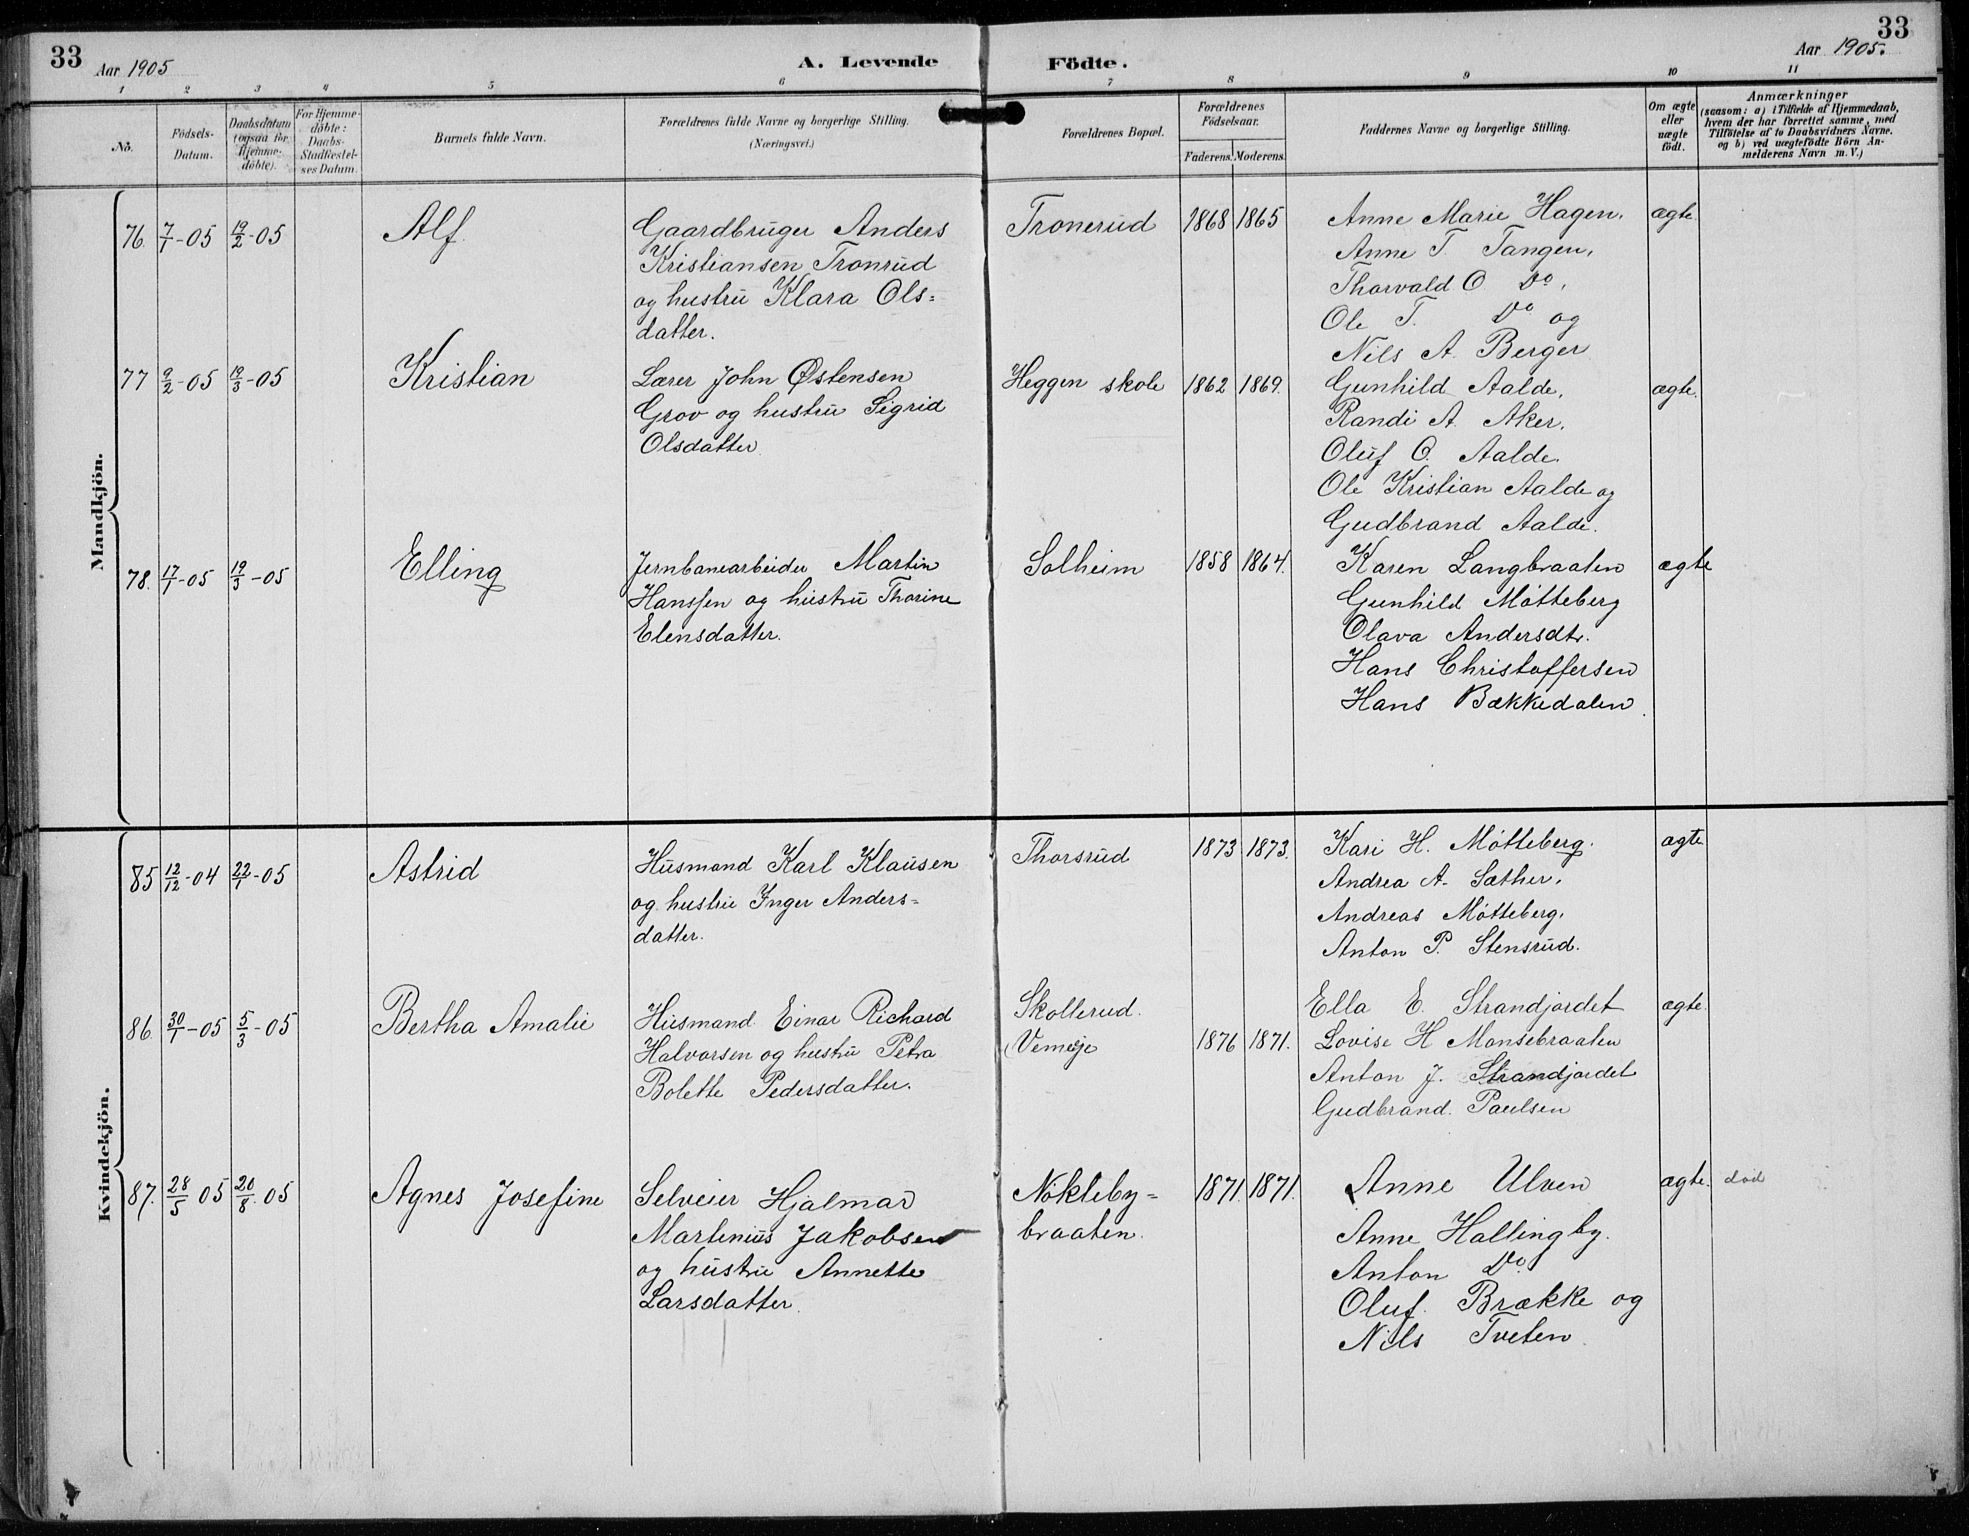 33
Aar 1905
A. Levende
Födte.
33
Aar 1905.
1 2 3 4 5 6 7 8 9 10 11
No.
Födsels-
Datum.
Daabsdatum
(ogsaa for
Hjemme-
döbte).
For Hjemme-
döbte:
Daabs-
Stadfæstel-
ses Datum.
Barnets fulde Navn.
Forældrenes fulde Navne og borgerlige Stilling.
(Næringsvei.)
Forældrenes Bopæl.
Forældrenes
Födselsaar.
Faderens. Moderens.
Faddernes Navne og borgerlige Stilling.
Om ægte
eller
uægte
födt.
Anmærkninger
(saasom: a) i Tilfælde af Hjemmedaab,
hvem der har forrettet samme, med
Tilföielse af to Daabsvidners Navne.
og b) ved uægtefödte Börn An-
melderens Navn m. V.)
Mandkjön.
76. 7/1-05 19/2-05
Alf.
Gaardbruger Anders
Kristiansen Tronrud
og hustru Klara Ols=
datter.
Tronerud
1868 1865
Anne Marie Hagen.
Anne T. Tangen,
Thorvald O. Do,
Ole T. Do og
Nils A. Berger
ægte.
77 9/2-05 19/3-05
Kristian
Lærer John Østensen
Grov og hustru Sigrid
Olsdatter.
Heggen skole
1862 1869.
Gunhild Aalde,
Randi A. Aker.
Oluf O. Aalde.
Ole Kristian Aalde og
Gudbrand Aalde.
ægte.
78. 17/1-05 19/3-05
Elling
Jernbanearbeider Martin
Hanssen og hustru Thorine
Elensdatter.
Solheim
1858 1864.
Karen Langbraaten
Gunhild Møtteberg
Olava Andersdtr.
Hans Christoffersen
Hans Bækkedalen.
ægte
Kvindekjön.
85 12/12-04 22/1-05
Astrid
Husmand Karl Klausen
og hustru Inger Anders=
datter.
Thorsrud
1873 1873.
Kari H. Møtteberg.
Andrea A. Sæther.
Andreas Møtteberg.
Anton P. Stensrud.
ægte
86. 30/1-05 5/3-05
Bertha Amalie
Husmand Einar Richard
Halvorsen og hustru Petra
Bolette Pedersdatter.
Skollerud.
Vemeje
1876 1871.
Ella E. Strandjordet
Lovise H Monsebraaten
Anton J. Strandjordet
Gudbrand. Paulsen
ægte.
87. 28/5 05 20/8. 05
Agnes Josefine
Selveier Hjalmar
Martenius Jakobsen
og hustru Annette
Larsdatter.
Nøkleby=
braaten.
1871 1871.
Anne Ulven
Anne Hallingby.
Anton Do
Oluf. Brække og
Nils Tveten.
ægte.
død